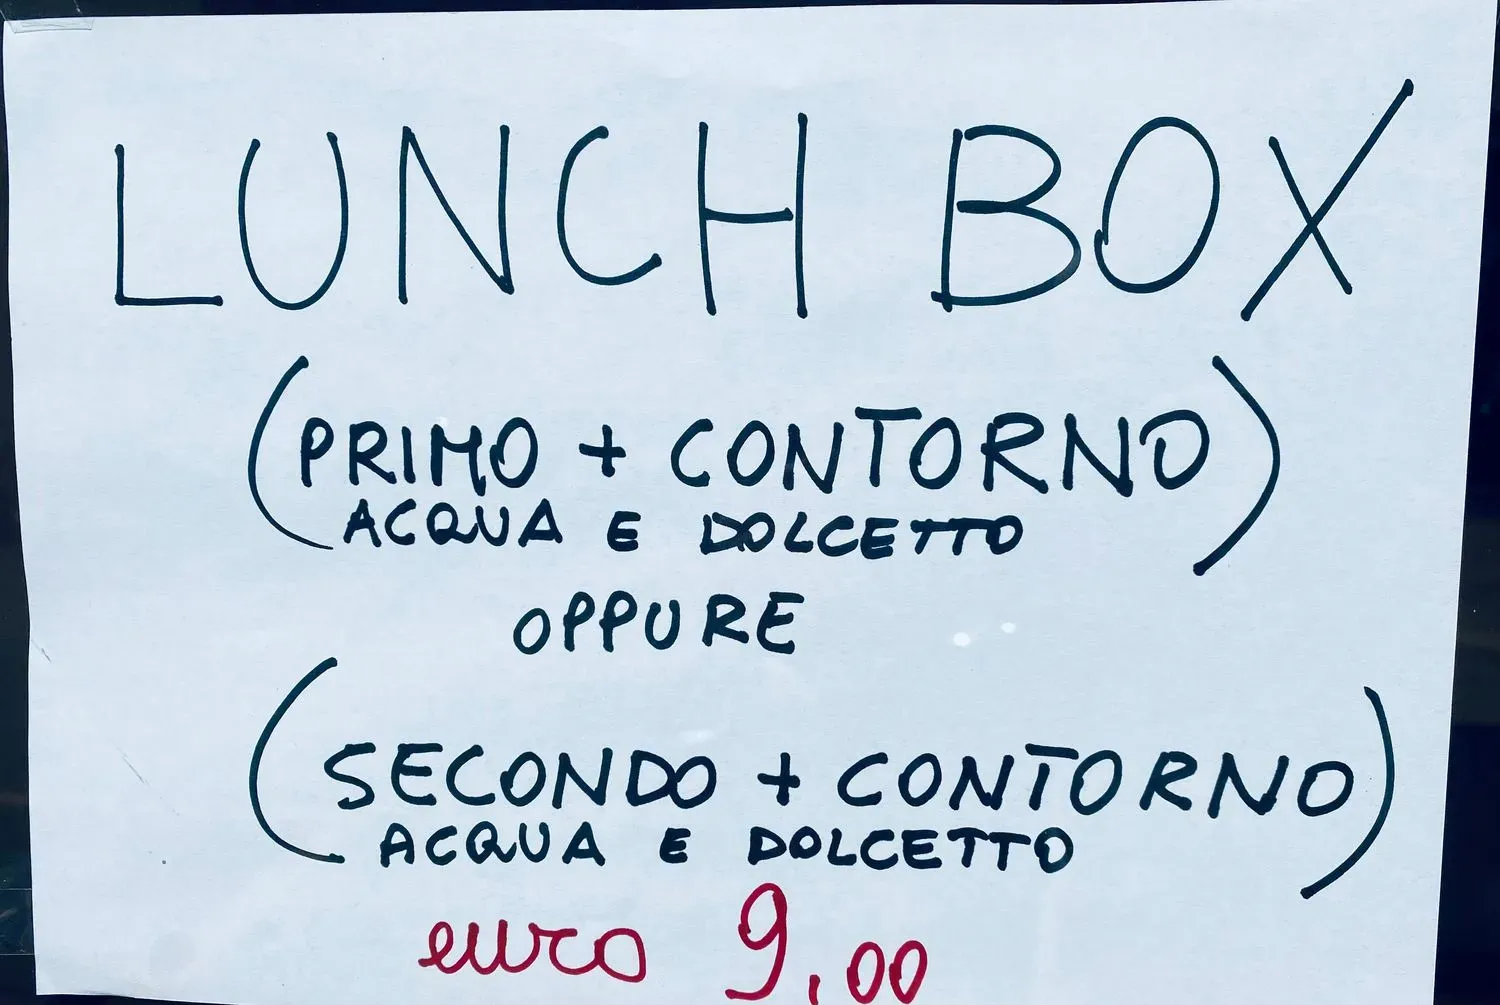 LUNCH BOX
(PRIMO + CONTORNO
ACQUA E DOLCETTO)
OPPURE
(SECONDO + CONTORNO
ACQUA E DOLCETTO)
euro 9,00